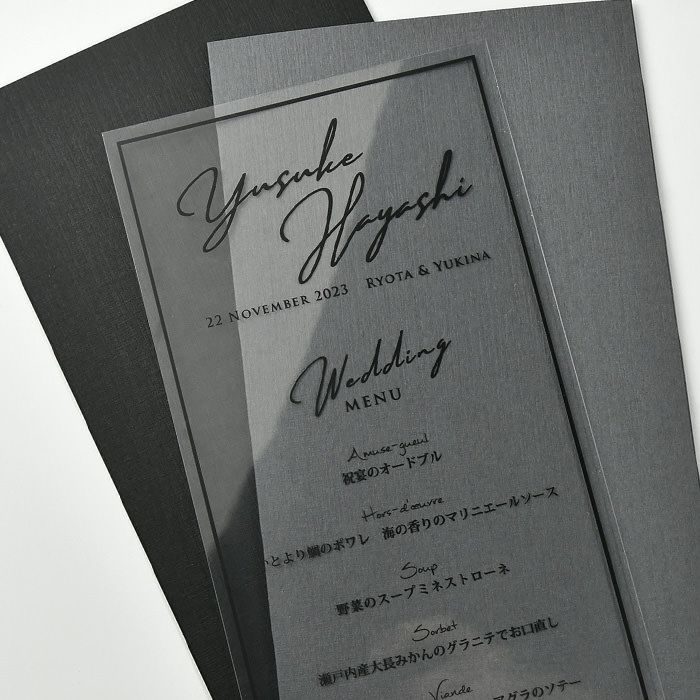 Yusuke
Hayashi
22 NOVEMBER 2023 RYOTA & YUKINA
Wedding
MENU
Amuse-gueul
祝宴のオードブル
Hors-d'œuvre
とより鯛のポワレ 海の香りのマリニエールソース
Soup
野菜のスープミネストローネ
Sorbet
瀬戸内産大長みかんのグラニテでお口直し
Viande
アグラのソテー